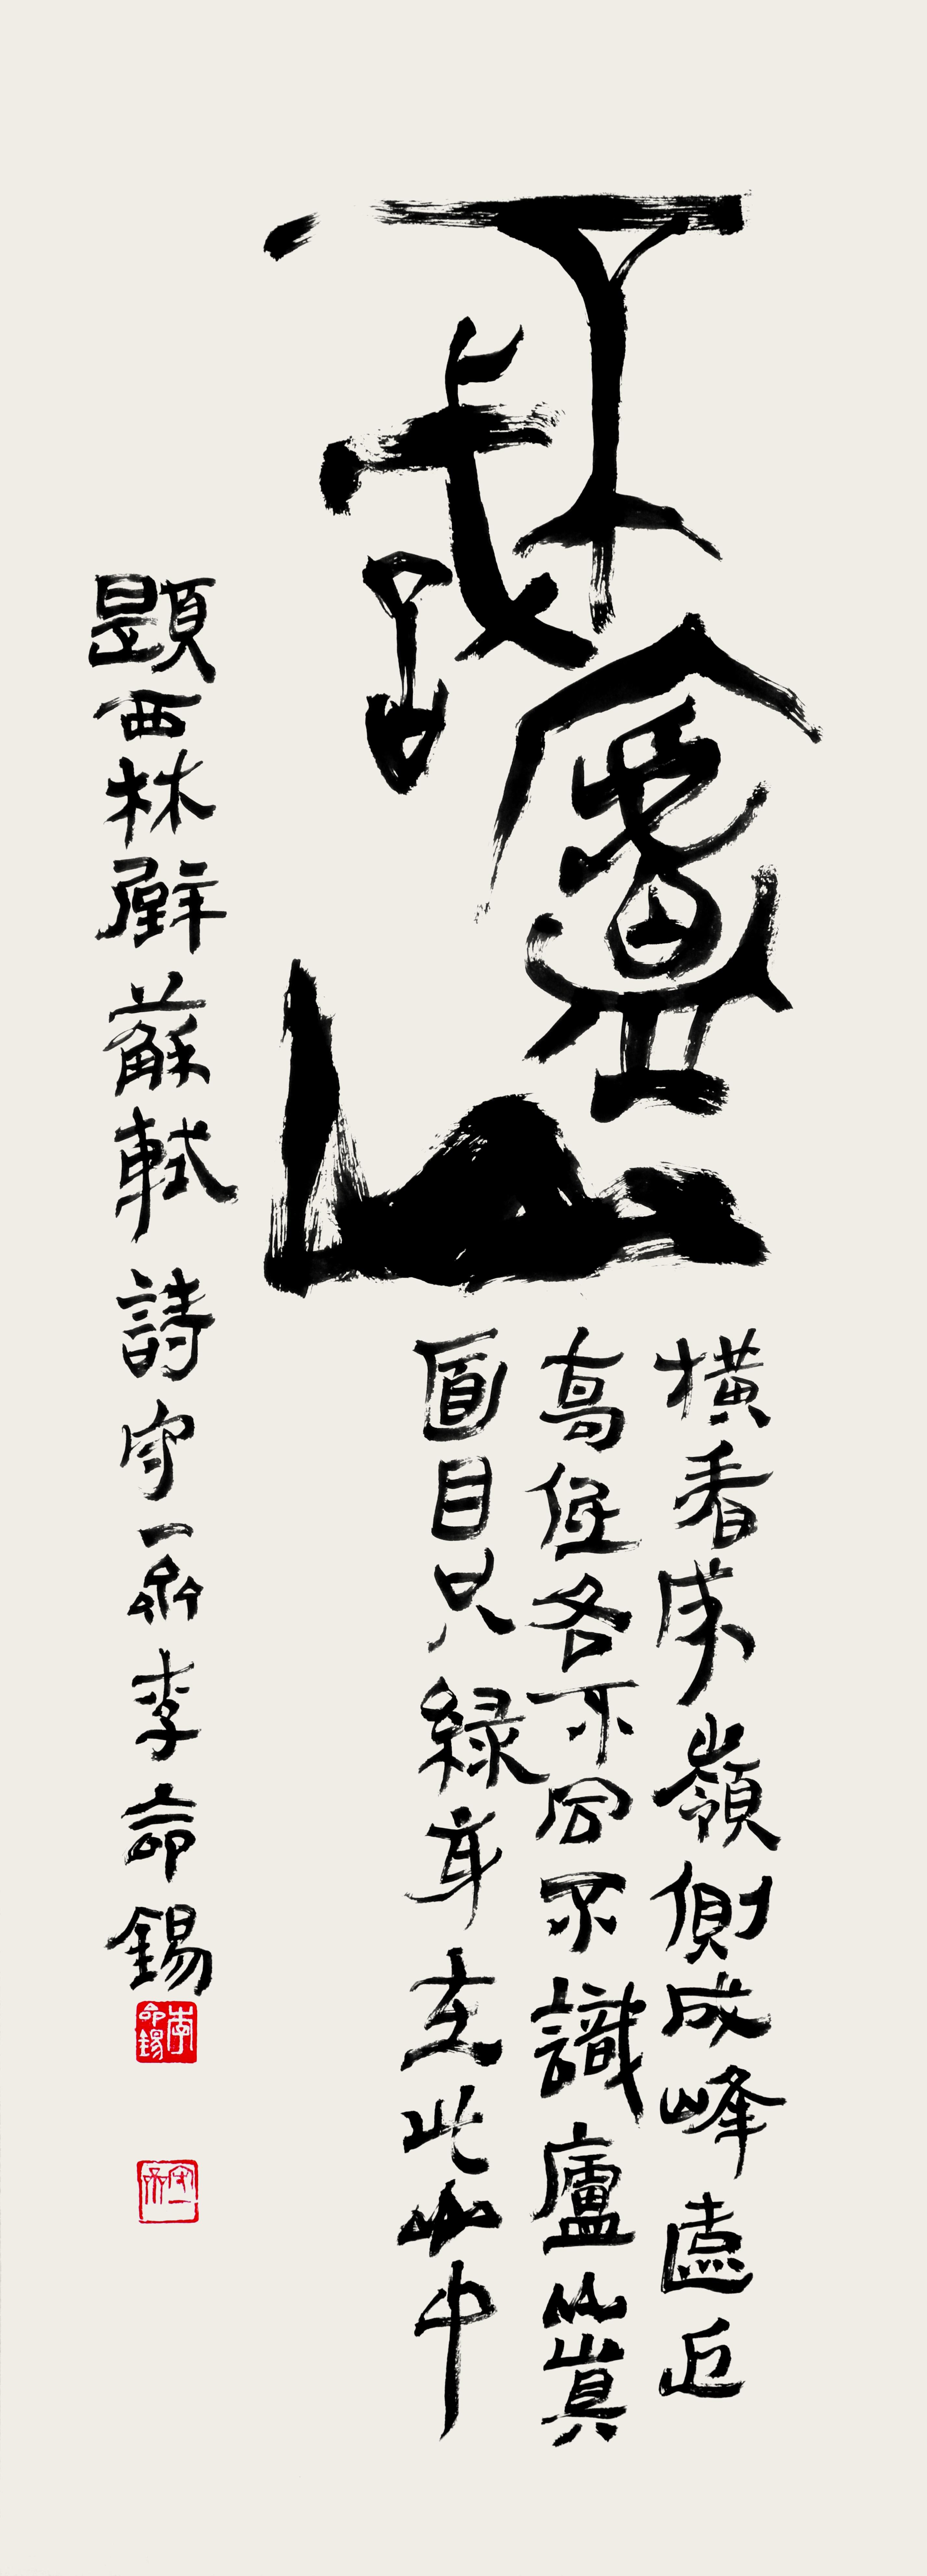 不識廬山
橫看成嶺側成峰遠近
高低各不同不識廬山真
面目只緣身在此山中
題西林壁 蘇軾詩 守一齋 李命錫
李命錫
守一齋